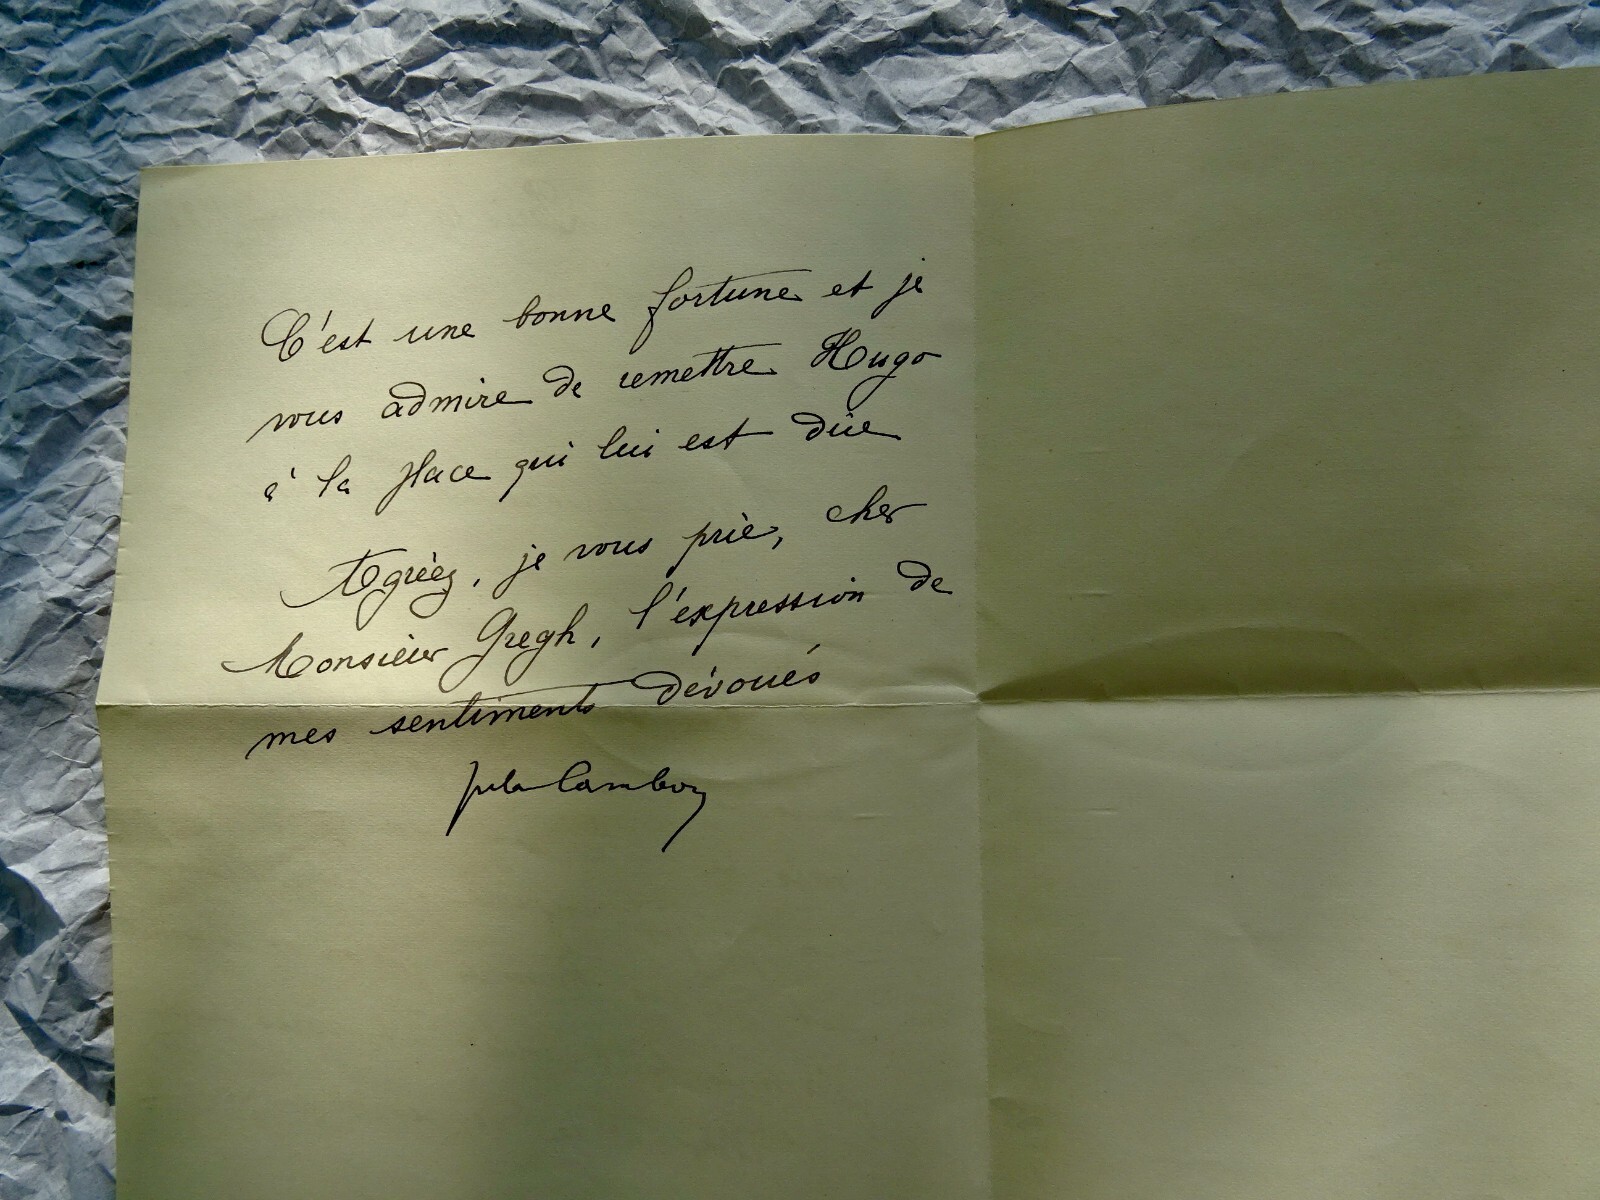 C'est une bonne fortune et je
vous admire de remettre Hugo
à la place qui lui est dûe
Agréez, je vous prie, cher
Monsieur Gregh, l'expression de
mes sentiments dévoués
Jules Cambon